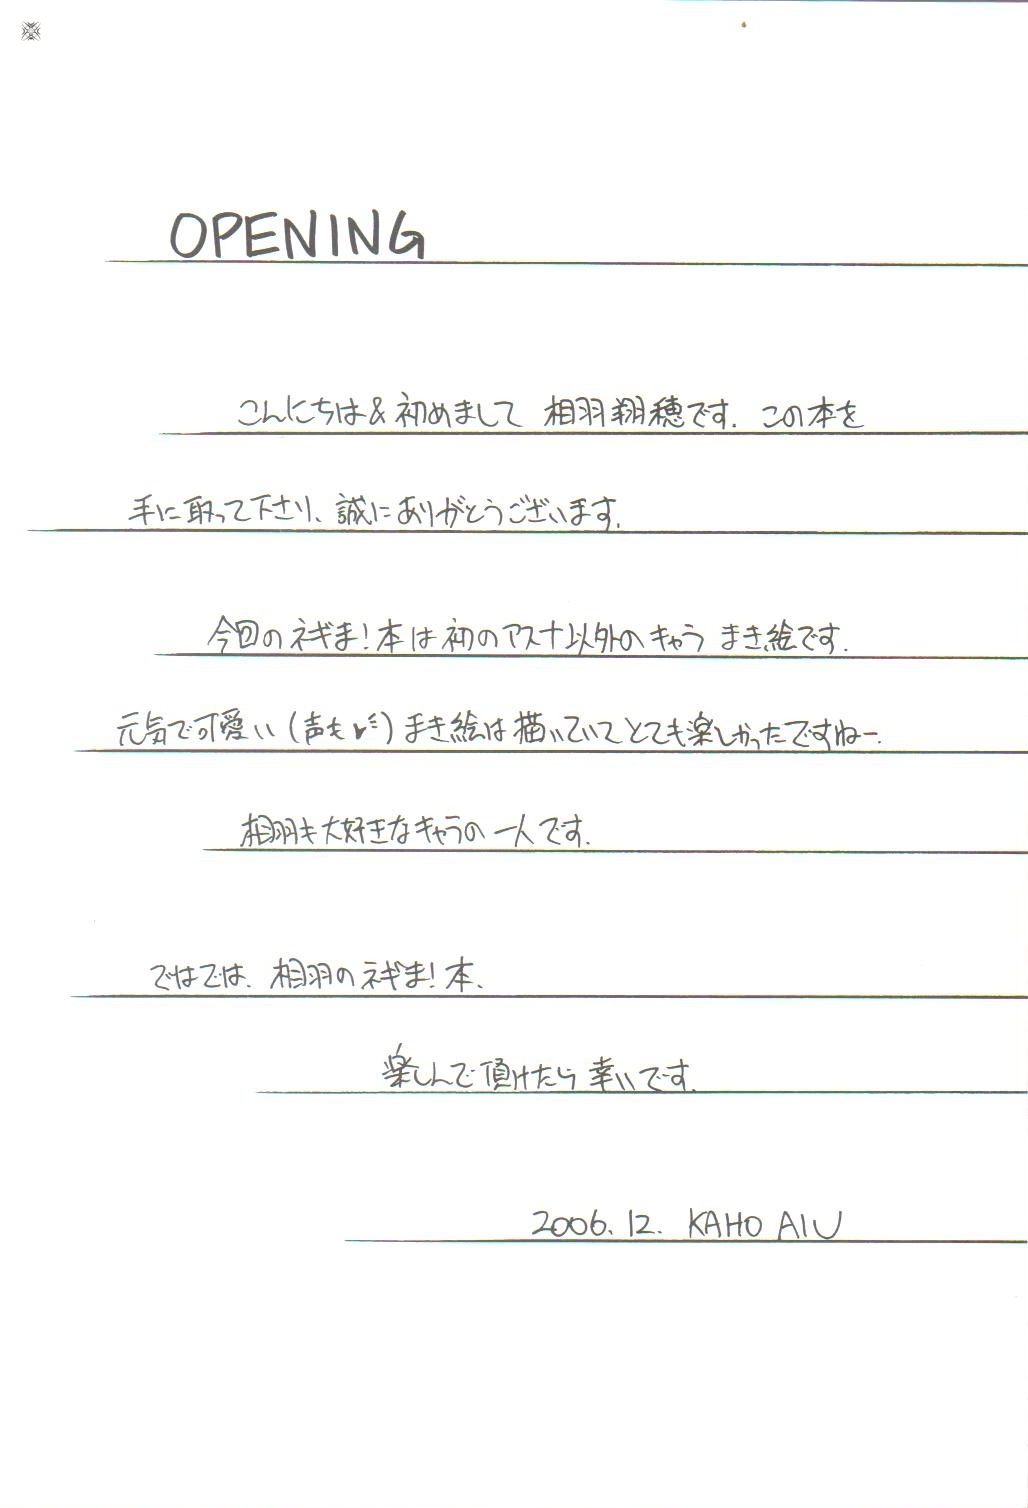 OPENING
こんにちは&初めまして 相羽翔穂です. この本を
手に取って下さり、誠にありがとうございます.
今回のネギま!本は初のアスナ以外のキャラ まき絵です.
元気で可愛い(声も♥ミ)まき絵は描いていてとても楽しかったですねー.
相羽も大好きなキャラの一人です.
ではでは、相羽のネギま!本、
楽しんで頂けたら幸いです.
2006.12. KAHO AIU